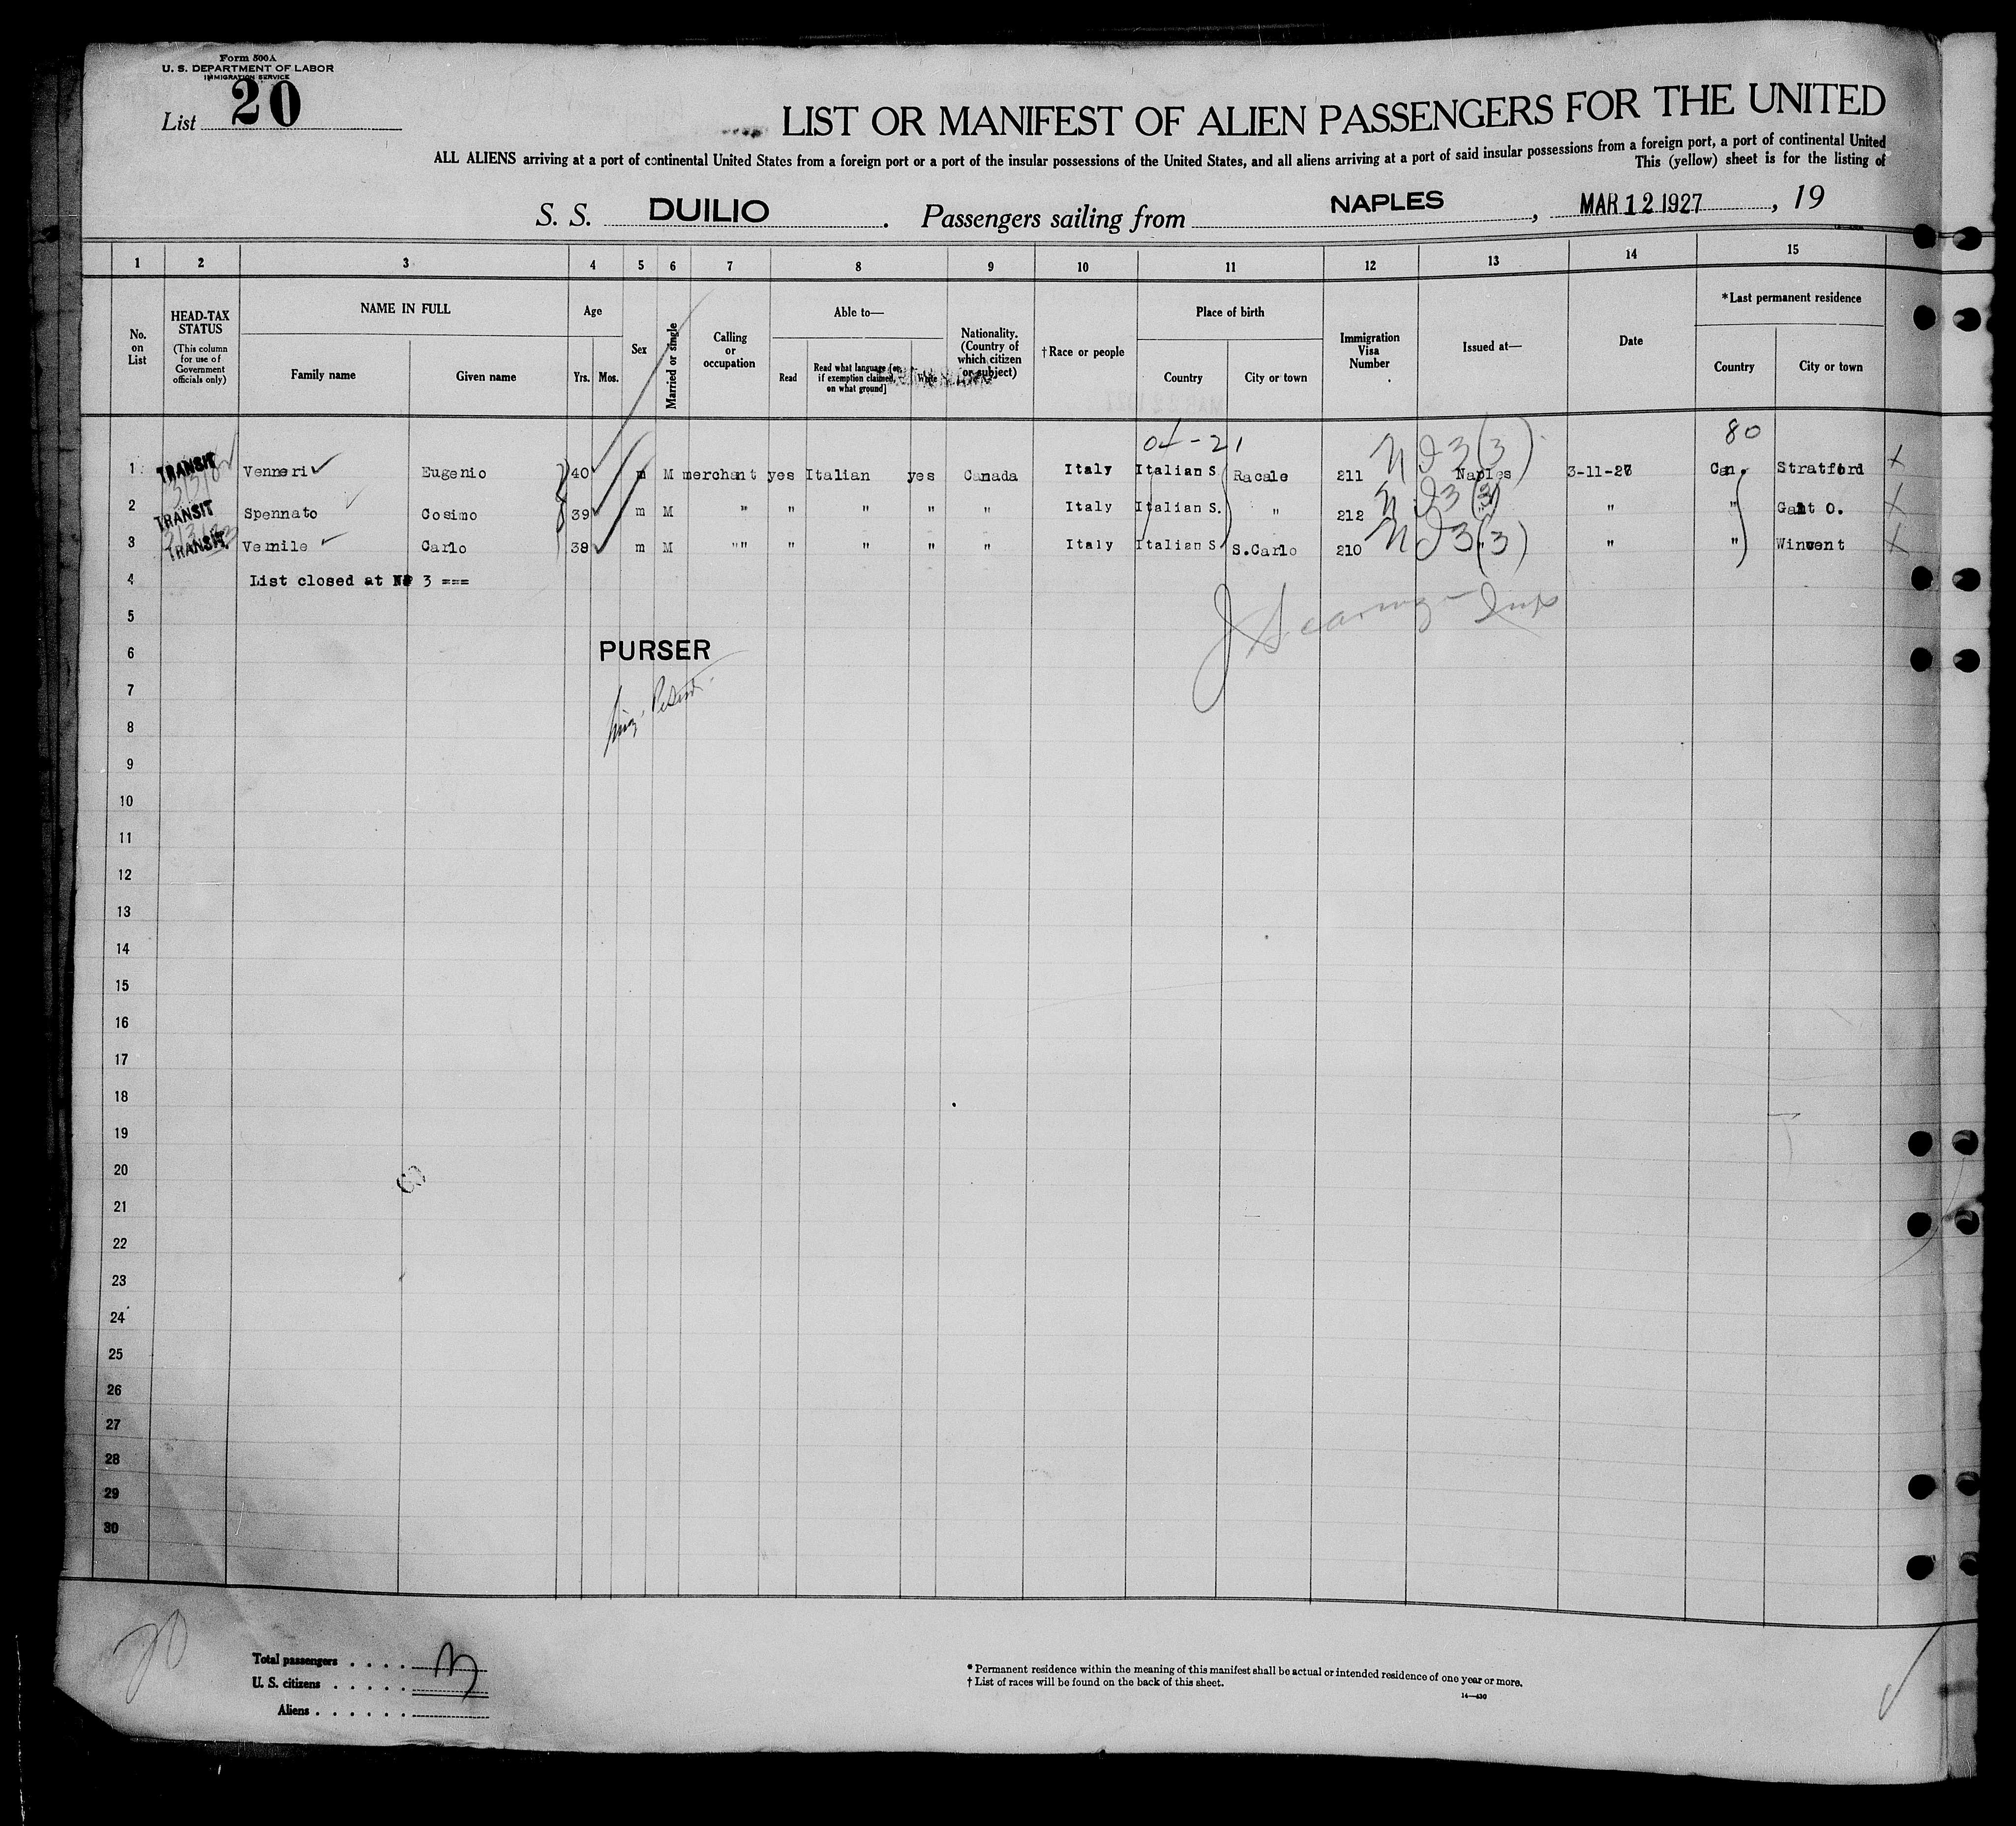 Form 500A
U. S. DEPARTMENT OF LABOR
IMMIGRATION SERVICE
List 20
LIST OR MANIFEST OF ALIEN PASSENGERS FOR THE UNITED
ALL ALIENS arriving at a port of continental United States from a foreign port or a port of the insular possessions of the United States, and all aliens arriving at a port of said insular possessions from a foreign port, a port of continental United
This (yellow) sheet is for the listing of
S. S. DUILIO. Passengers sailing from NAPLES, MAR 12 1927, 19
1 2 3 4 5 6 7 8 9 10 11 12 13 14 15
No. on List
HEAD-TAX STATUS
(This column for use of Government officials only)
NAME IN FULL
Family name Given name
Age
Yrs. Mos.
Sex
Married or single
Calling or occupation
Able to—
Read Read what language [or, if exemption claimed, on what ground] Write
Nationality. (Country of which citizen or subject)
†Race or people
Place of birth
Country City or town
Immigration Visa Number
Issued at—
Date
*Last permanent residence
Country City or town
80
1 TRANSIT Venneri Eugenio 40 m M merchant yes Italian yes Canada Italy Italian S Racale 211 Naples 3-11-27 Can. Stratford X
2 TRANSIT Spennato Cosimo 39 m M " " " " " Italy Italian S. " 212 " " " O. X
3 TRANSIT. Vemile Carlo 38 m M "" " " " " Italy Italian S S.Carlo 210 " " " X
4 List closed at N° 3 ===
5
6 PURSER
7
8
9
10
11
12
13
14
15
16
17
18
19
20
21
22
23
24
25
26
27
28
29
30
20
Total passengers . . . . 3
U. S. citizens . . . . .
Aliens . . . . . .
* Permanent residence within the meaning of this manifest shall be actual or intended residence of one year or more.
† List of races will be found on the back of this sheet.
14—430